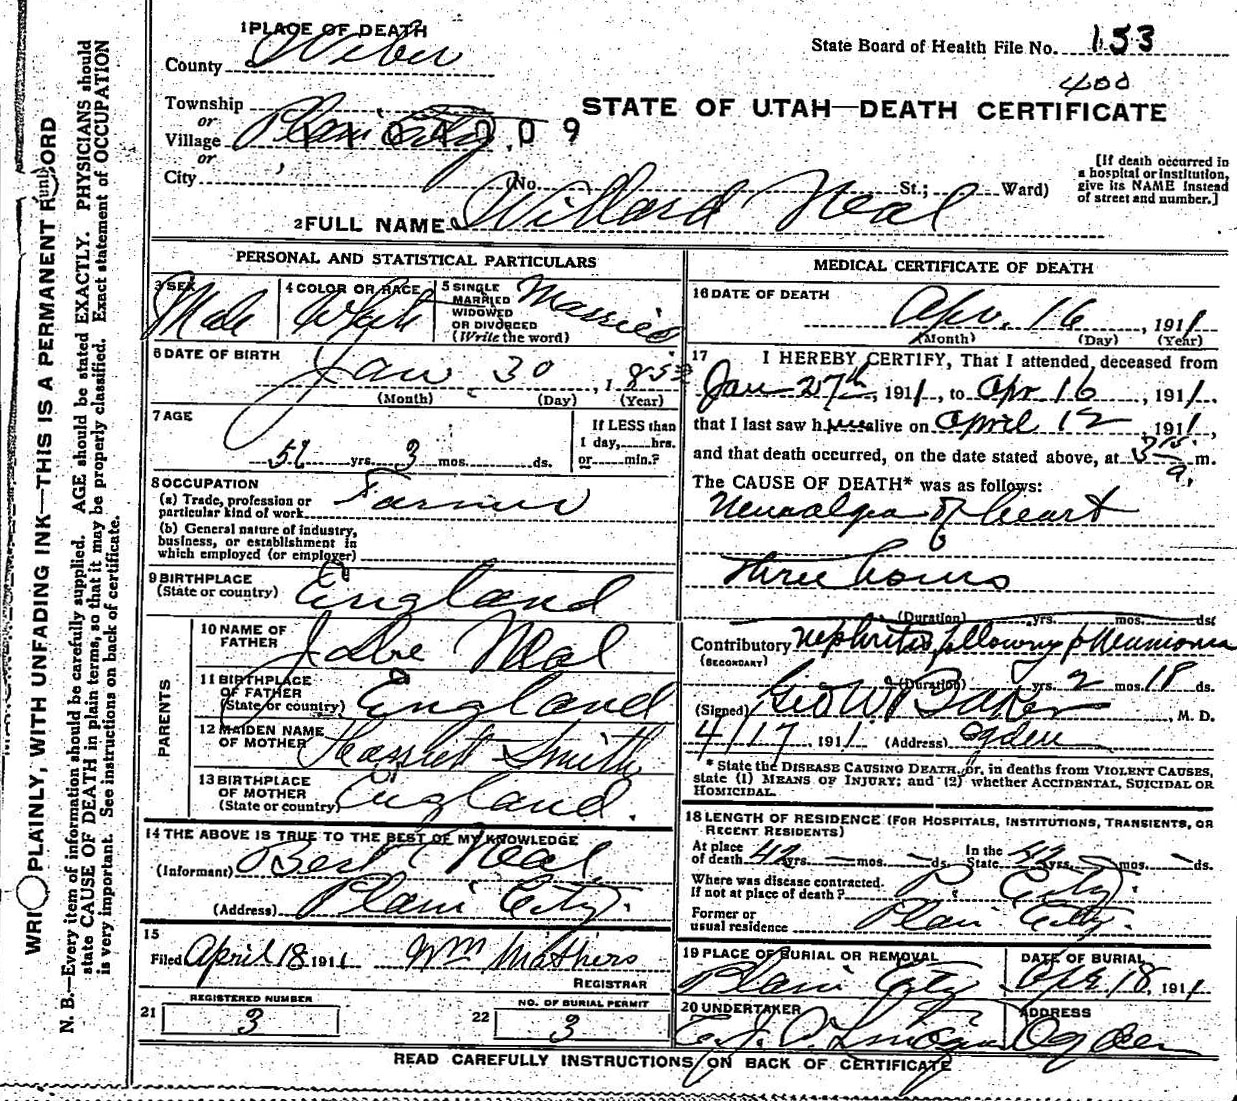 1 PLACE OF DEATH
County Weber
State Board of Health File No. 153
400
Township
or
Village Plain City
or
City
STATE OF UTAH—DEATH CERTIFICATE
(No. St.; Ward)
[If death occurred in
a hospital or institution,
give its NAME instead
of street and number.]
2 FULL NAME Willard Neal
PERSONAL AND STATISTICAL PARTICULARS
3 SEX
Male
4 COLOR OR RACE
White
5 SINGLE
MARRIED
WIDOWED
OR DIVORCED
(Write the word)
Married
6 DATE OF BIRTH
Jan 30, 1853
(Month) (Day) (Year)
7 AGE
yrs. 3 mos. ds.
If LESS than
1 day, hrs.
or min.?
8 OCCUPATION
(a) Trade, profession or
particular kind of work Farmer
(b) General nature of industry,
business, or establishment in
which employed (or employer)
9 BIRTHPLACE
(State or country) England
PARENTS
10 NAME OF
FATHER Neal
11 BIRTHPLACE
OF FATHER
(State or country) England
12 MAIDEN NAME
OF MOTHER Harriet Smith
13 BIRTHPLACE
OF MOTHER
(State or country) England.
14 THE ABOVE IS TRUE TO THE BEST OF MY KNOWLEDGE
(Informant) Bert Neal
(Address) Plain City.
15
Filed April 18 1911 Wm Mathers
REGISTRAR
21 REGISTERED NUMBER
3
22 NO. OF BURIAL PERMIT
3
MEDICAL CERTIFICATE OF DEATH
16 DATE OF DEATH
Apr. 16, 1911
(Month) (Day) (Year)
17 I HEREBY CERTIFY, That I attended, deceased from
Jan 27th, 1911, to Apr 16, 1911,
that I last saw h alive on April 12, 1911,
and that death occurred, on the date stated above, at m.
The CAUSE OF DEATH* was as follows:
Neuralgia of heart
Three hours
(Duration) yrs. mos. ds.
Contributory Nephritis following pneumonia
(SECONDARY)
(Duration) yrs. 2 mos. 18 ds.
(Signed) Geo W Baker, M. D.
4/17 1911 (Address) Ogden
* State the DISEASE CAUSING DEATH, or, in deaths from VIOLENT CAUSES,
state (1) MEANS OF INJURY; and (2) whether ACCIDENTAL, SUICIDAL OR
HOMICIDAL.
18 LENGTH OF RESIDENCE (FOR HOSPITALS, INSTITUTIONS, TRANSIENTS, OR
RECENT RESIDENTS)
At place
of death 42 yrs. — mos. — ds. In the
State 42 yrs. — mos. — ds.
Where was disease contracted.
If not at place of death? P. City.
Former or
usual residence Plain City.
19 PLACE OF BURIAL OR REMOVAL
Plain City
DATE OF BURIAL
Apr 18, 1911
20 UNDERTAKER
ADDRESS
Ogden
READ CAREFULLY INSTRUCTIONS ON BACK OF CERTIFICATE
PLAINLY, WITH UNFADING INK—THIS IS A PERMANENT RECORD
N. B.—Every item of information should be carefully supplied. AGE should be stated EXACTLY. PHYSICIANS should
state CAUSE OF DEATH in plain terms, so that it may be properly classified. Exact statement of OCCUPATION
is very important. See instructions on back of certificate.